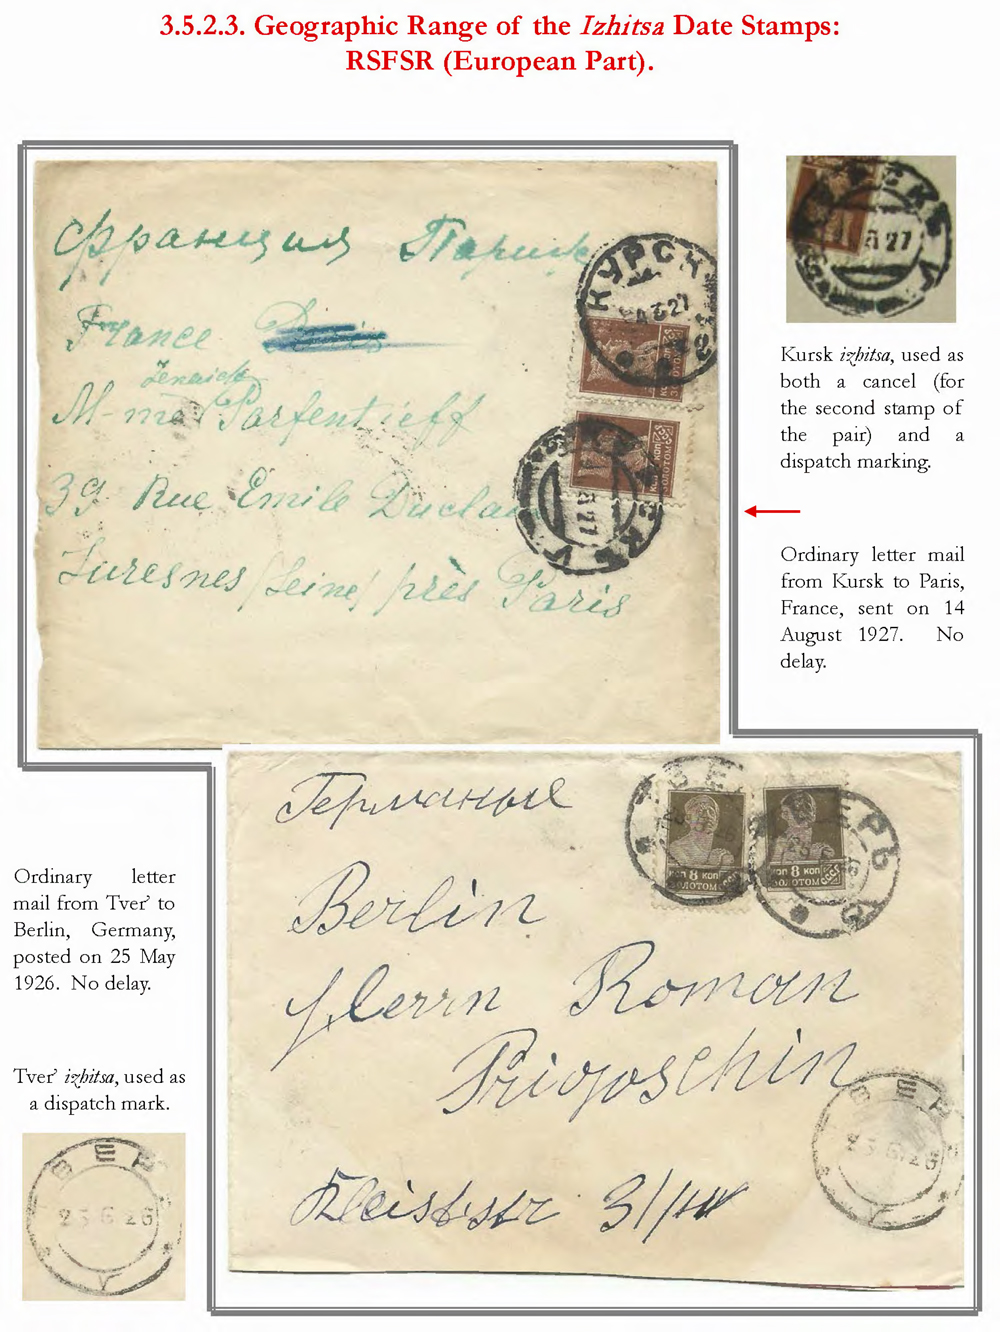 3.5.2.3. Geographic Range of the Izhitsa Date Stamps:
RSFSR (European Part).
Франция Париж
France
Zenaide
M-me Parfentieff
39 Rue Emile Duclaux
Suresnes /Seine/ près Paris
КУРСК
27
КОП
ЗОЛОТОМ
27
27
Kursk izhitsa, used as
both a cancel (for
the second stamp of
the pair) and a
dispatch marking.
Ordinary letter mail
from Kursk to Paris,
France, sent on 14
August 1927. No
delay.
Германые
ВЕР
ВЕРЬ
КОП 8 КОП
ЗОЛОТОМ СССР
КОП 8 КОП
ЗОЛОТОМ СССР
Berlin
Herrn Roman
Prigoschin
Kleiststr 31/
ВЕР
25.6.26
Ordinary letter
mail from Tver' to
Berlin, Germany,
posted on 25 May
1926. No delay.
Tver' izhitsa, used as
a dispatch mark.
ВЕР
25 6 26
V